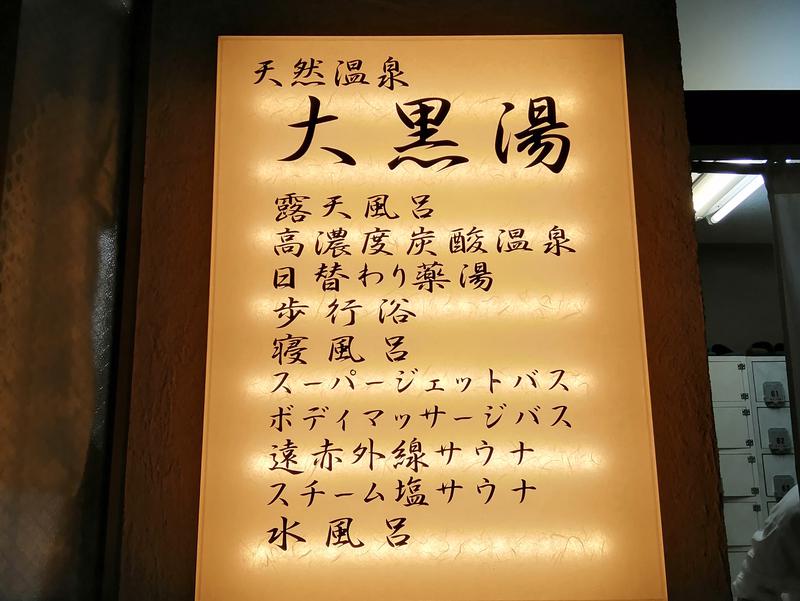 天然温泉
大黒湯
露天風呂
高濃度炭酸温泉
日替わり薬湯
歩行浴
寝風呂
スーパージェットバス
ボディマッサージバス
遠赤外線サウナ
スチーム塩サウナ
水風呂
61
62